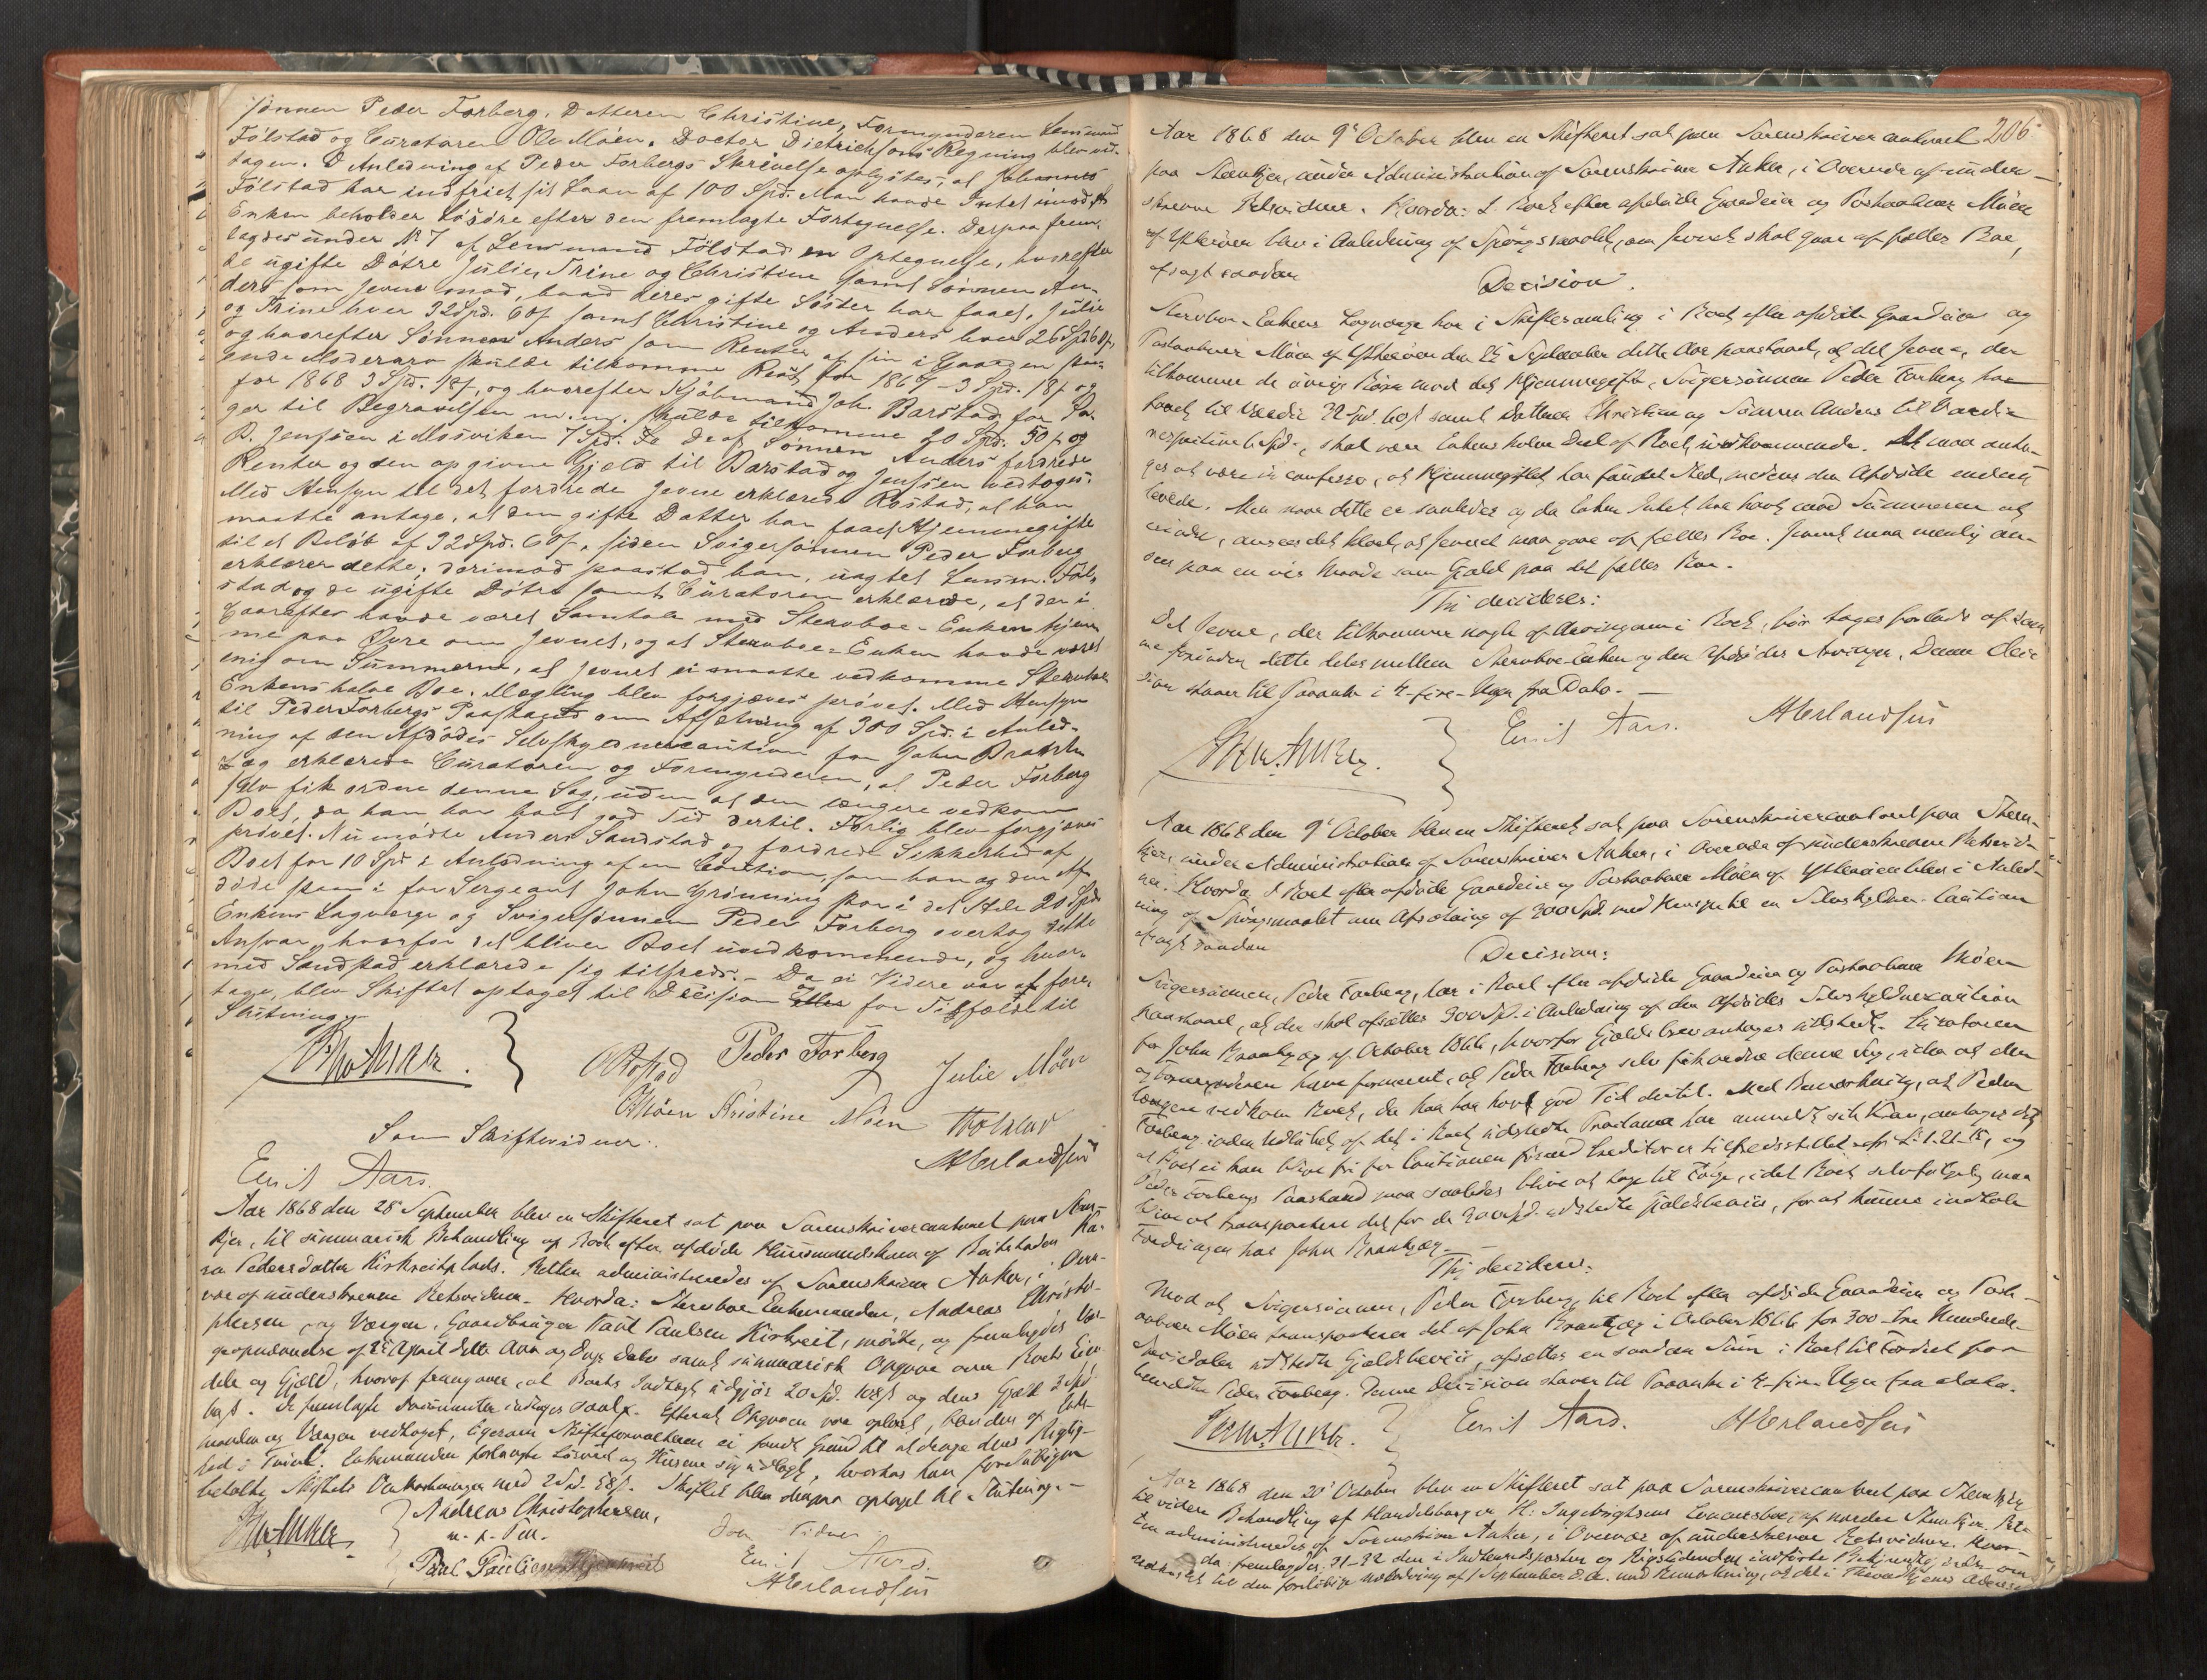 Sønnen Peder Forberg, Datteren Christine, Formynderen Lensmand
Følstad og Curatoren Ole Møen. Doctor Dietrichsons Regning blev ved-
tagen. I Anledning af Peder Forbergs Skrivelse oplystes, at Johannes
Følstad har indfriet sit Laan af 100 Spd. Man havde Intet imod, at
Enken beholder Løsøre efter den fremlagte Fortegnelse. Derpaa frem-
lagdes under No 7 af Lensmand Følstad en Optegnelse, hvorefter
de ugifte Døtre Julie, Trine og Christine samt Sønnen An-
ders som Jevne mod, hvad deres gifte Søster har faaet, Julie
og Trine hver 32 Spd. 60 s samt Christine og Anders hver 26 Spd 60 s,
og hvorefter Sønnen Anders som Renter af sin i Gaarden staa-
ende Mødrearv skulde tilkomme Rest for 1867 - 3 Spd. 18 s og
for 1868 3 Spd. 18 s, og hvorefter Kjøbmand Joh. Barstad for Va-
ger til Begravelsen m. m. skulde tilkomme 20 Spd. 50 s og
P. Jenssen i Mosviken 7 Spd. De af Sønnen Anders fordrede
Renter og den opgivne Gjeld til Barstad og Jenssen vedtoges.
Med Hensyn til det fordrede Jevne erklærede Rostad, at han
maatte antage, at den gifte Datter har faaet Hjemmegifte
til et Beløb af 32 Spd. 60 s, siden Svigersønnen Peder Forberg
erklærer dette; derimod paastod han, uagtet Lensm. Føl-
stad og de ugifte Døtre samt Curatoren erklærede, at der i
Vaarefter havde været Samtale med Stervboe-Enken hjem-
me paa Øvre om Jevnet, og at Stervboe-Enken havde været
enig om Summerne, at Jevnet ei maatte vedkomme Stervboe
Enkens halve Boe. Mægling blev forgjæves prøvet. Med Hensyn
til Peder Forbergs Paastand om Afsætning af 300 Spd. i Anled-
ning af den Afdødes Selvskyldnercaution for John Brandt-
æg erklærede Curatoren og Formynderen, at Peder Forberg
selv fik ordne denne Sag, uden at den længere vedkom
Boet, da han har havt god Tid dertil. Forlig blev forgjæves
prøvet. Nu mødte Anders Sandstad og fordrede Sikkerhed af
Boet for 10 Spd i Anledning af en Caution, som han og den Af-
døde staar i for Sergeant John Grønning stor i det Hele 20 Spd.
Enkens Laugværge og Svigersønnen Peder Forberg overtog dette
Ansvar, hvorfor det bliver Boet uvedkommende, og hvor-
med Sandstad erklærede sig tilfreds. - Da ei Videre var at fore-
tage, blev Skiftet optaget til Decision og for Tilfældet til
Slutning.
ORostad Peder Forberg Julie Møen
OMøen Kristine Møen
Som Skiftevidner:
Emil Aars. HErlandsen
Aar 1868 den 28 September blev en Skifteret sat paa Sorenskrivercontoret paa Sten-
kjer, til summarisk Behandling af Boet efter afdøde Huusmandskone af Beitstaden Ka-
ren Pedersdatter Kirkreitplads. Retten administreredes af Sorenskriver Anker, i Over-
vær af underskrevne Retsvidner. Hvorda: Stervboe Enkemanden, Andreas Christo-
phersen, og Værgen, Gaardbruger Paul Paulsen Kirkreit, mødte, og fremlagdes Vær-
geopnævnelse af 25 April dette Aar og Dags Dato samt summarisk Opgave over Boets Eien-
dele og Gjæld, hvoraf fremgaaer, at Boets Indtægt udgjør 20 Spd. 108 s og dens Gjæld 3 Spd
De fremlagte Documenter indtages saal. Efterat Opgaven var oplæst, blev den af Enke-
manden og Værgen vedtaget, ligesom Skifteforvalteren ei fandt Grund til at drage dens Rigtig-
hed i Tvivl. Enkemanden forlangte Løsøret og Husene sig udlagt, hvorhos han forpligtigede
betalte Skiftets Omkostninger med 2 Spd. 58 s. Skiftet blev derpaa optaget til Slutning. -
Andreas Christophersen,
m. p. Pen.
Som Vidner
Paul Paulsen
Emil Aars.
HErlandsen
206
Aar 1868 den 9de October blev en Skifteret sat paa Sorenskrivercontoret
paa Stenkjer, under Administration af Sorenskriver Anker, i Overvær af under-
skrevne Retsvidner. Hvorda: I Boet efter afdøde Gaardeier og Postaabner Møen
af Ytterøen blev i Anledning af Spørgsmaalet, om Jevnet skal gaae af fælles Boe,
afsagt saadan
Decision.
Stervboe-Enkens Laugværge har i Skiftesamling i Boet efter afdøde Gaardeier og
Postaabner Møen af Ytterøen den 25 September dette Aar paastaaet, at det Jevne, der
tilkommer de øvrige Børn mod det Hjemmegifte, Svigersønnen Peder Forberg har
faaet til Værdie 32 Spd. 60 s samt Datteren Christine og Sønnen Anders til Værdie
respective 6 Spd., skal være Enkens halve Deel af Boet uvedkommende. Det maa anta-
ges at være in confesso, at Hjemmegiftet har fundet Sted, medens den Afdøde endnu
levede. Men naar dette er saaledes og da Enken Intet har havt mod Summerne at
erindre, ansees det klart, at Jevnet maa gaae af fælles Boe. Jevnet maa nemlig an-
sees paa en vis Maade som Gjæld paa det fælles Boe.
Thi decideres:
Det Jevne, der tilkommer nogle af Arvingerne i Boet, bør tages forlods af sam-
me forinden dette deles mellem Stervboe-Enken og den Afdødes Arvinger. Denne Deci-
sion staaer til Paaanke i 4-fire-Uger fra Dato. -
Emil Aars. HErlandsen
Aar 1868 den 9de October blev en Skifteret sat paa Sorenskrivercontoret paa Sten-
kjer, under Administration af Sorenskriver Anker, i Overvær af underskrevne Retsvid-
ner. Hvorda: I Boet efter afdøde Gaardeier og Postaabner Møen af Ytterøen blev i Anled-
ning af Spørgsmaalet om Afsætning af 300 Spd. med Hensyn til en Selvskyldner-Caution
afsagt saadan
Decision:
Svigersønnen, Peder Forberg, har i Boet efter afdøde Gaardeier og Postaabner Møen
paastaaet, at der skal afsættes 300 Spd. i Anledning af den Afdødes Selvskyldnercaution
for John Brandtzæg af October 1866, hvorfor Gjældsbrev antages udstedt. Curatoren
og Formynderen have formeent, at Peder Forberg selv fik ordne denne Sag, uden at den
længere vedkom Boet, da han har havt god Tid dertil. Med Bemærkning, at Peder
Forberg inden Udløbet af det i Boet udstedte Proclama har anmeldt sit Krav, antages det,
at Boet ei kan blive fri for Cautionen førend Creditor er tilfredsstillet efter L: 1-21-15, og
Peder Forbergs Paastand maa saaledes blive at tage til Følge, idet Boet selvfølgelig maa
blive at transportere det for de 300 Spd. udstedte Gjældsbeviis, for at kunne inddrive
Fordringen hos John Brandtzæg. -
Thi decideres:
Mod at Svigersønnen, Peder Forberg, til Boet efter afdøde Gaardeier og Post-
aabner Møen transporterer det af John Brandtzæg i October 1866 for 300 - tre Hundrede
Speciedaler udstedte Gjældsbeviis, afsættes en saadan Sum i Boet til Fordeel for
bemeldte Peder Forberg. Denne Decision staaer til Paaanke i 4-fire-Uger fra Dato.
Emil Aars. HErlandsen
Aar 1868 den 20 October blev en Skifteret sat paa Sorenskrivercontoret paa Stenkjer
til videre Behandling af Handelsborger H: Ingebrigtsens Concursboe, af nordre Stenkjer. Ret-
ten administreredes af Sorenskriver Anker, i Overvær af underskrevne Retsvidner. Hvor-
da: fremlagdes 31-32 den i Indherredsposten og Rigstidenden indførte Bekjendtgjørelse om
til den foreløbige Udlodning af 1 September d. A. med Bemærkning, at det i Throndhjems Adresse